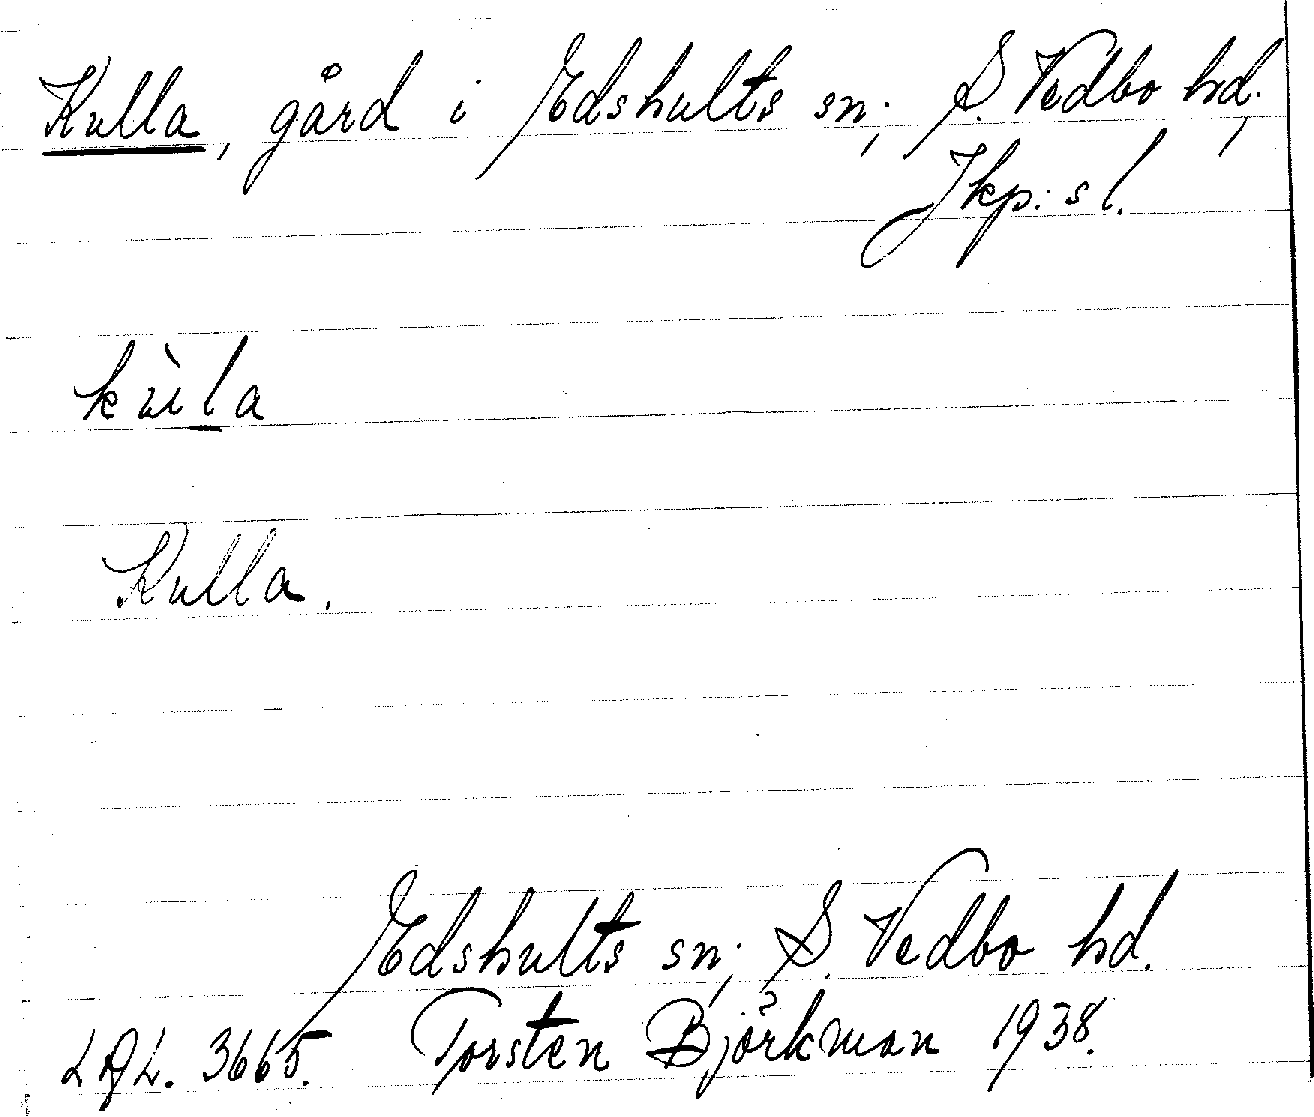 Kulla, gård i Edshults sn; S. Vedbo hd,
Jkp:s l.
kùl̲a
Kulla.
Edshults sn; S. Vedbo hd.
LAL. 3665. Torsten Björkman 1938.